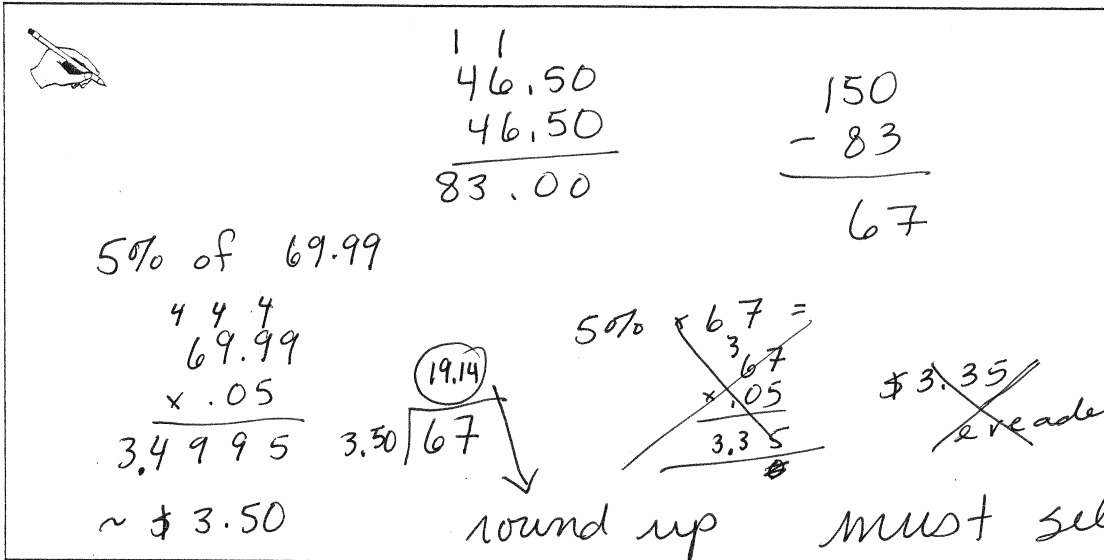 1 1
46.50
46.50
83.00
150
- 83
67
5% of 69.99
4 4 4
69.99
x .05
3.4995
~ $ 3.50
19.14
3.50 67
5% x 67 =
3
67
x .05
3.35
$3.35
round up must sel